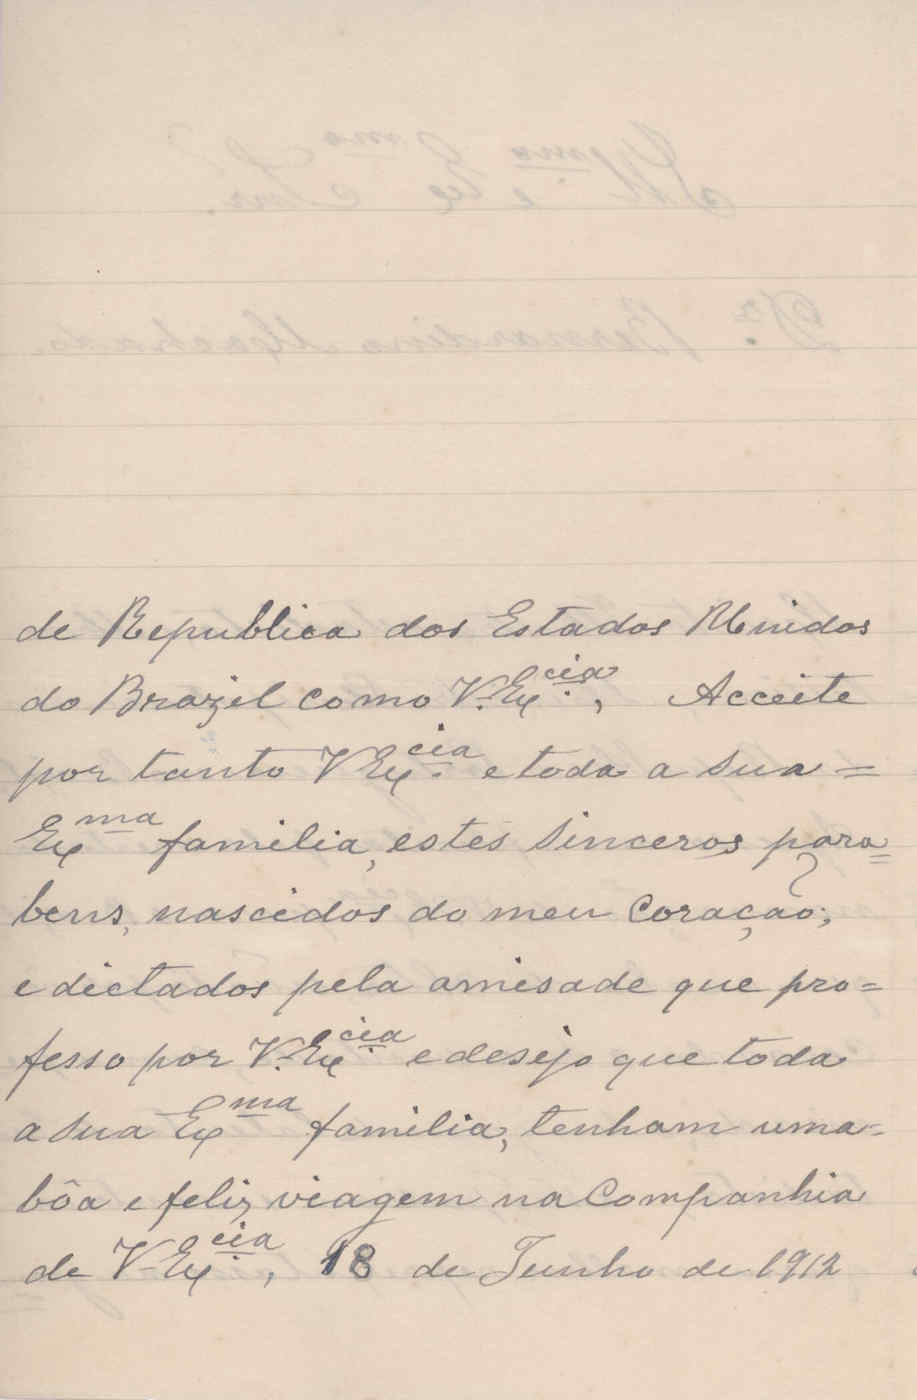 de Republica dos Estados Unidos
do Brazil como V. Ex.cia, Acceite
por tanto V Ex.cia e toda a sua =
Exma familia, estes sinceros para=
bens, nascidos do meu Coração;
e dictados pela amisade que pro=
fesso por V. Ex.cia e desejo que toda
a sua Exma familia, tenham uma=
bôa e feliz viagem na Companhia
de V Ex.cia, 18 de Junho de 1912